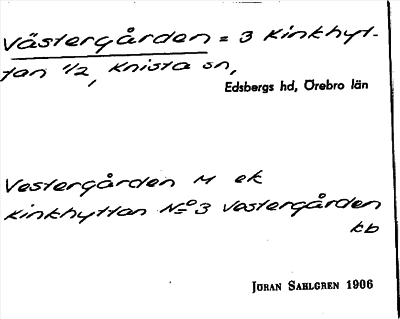 Västergården = 3 Kinkhyt-
tan 1/2, Knista sn,
Edsbergs hd, Örebro län
Vestergården M ek
Kinkhyttan No 3 Vestergården
kb
Jöran Sahlgren 1906